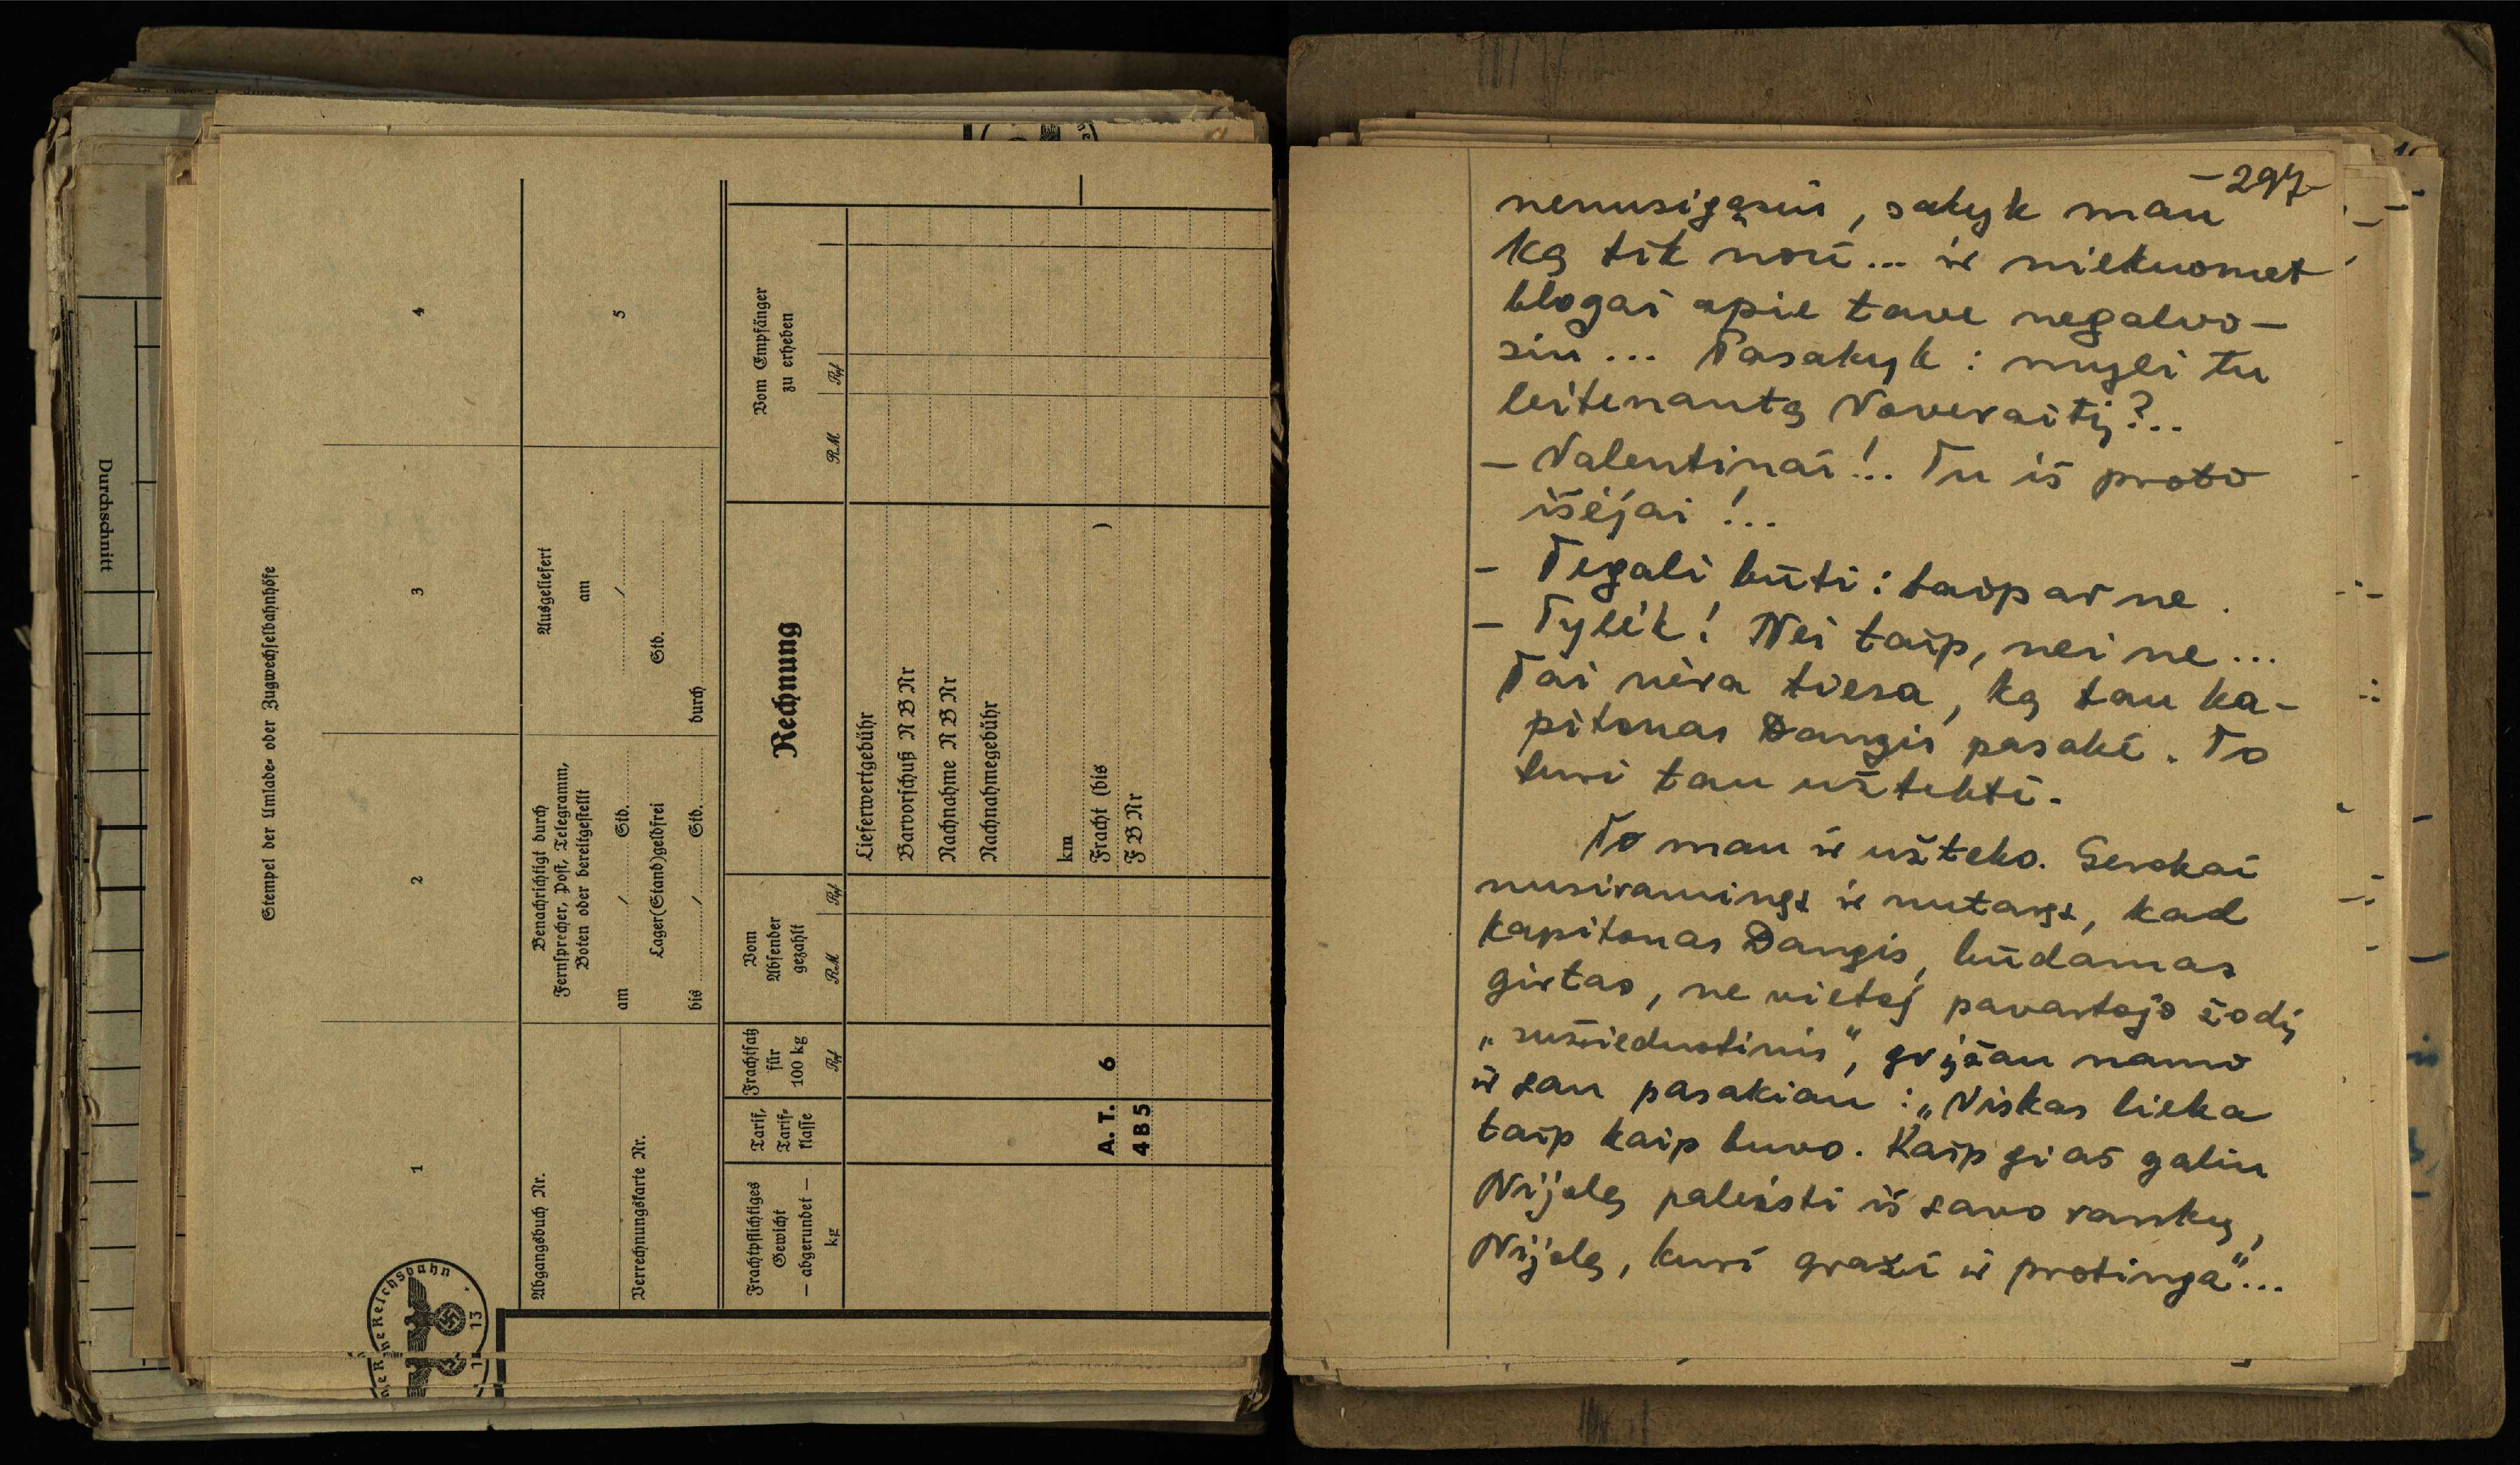 Durchschnitt
Stempel der Umlade- oder Zugwechselbahnhöfe
1
2
3
4
Abgangsbuch Nr.
Verrechnungskarte Nr.
Benachrichtigt durch
Fernsprecher, Post, Telegramm,
Boten oder bereitgestellt
am / Std.
Lager(Stand)geldfrei
bis / Std.
Ausgeliefert
am
/
Std.
durch
5
Frachtpflichtiges
Gewicht
— abgerundet —
kg
Tarif,
Tarif-
klasse
Frachtsatz
für
100 kg
Rpf
Vom
Absender
gezahlt
RM Rpf
Rechnung
Vom Empfänger
zu erheben
RM Rpf
Lieferwertgebühr
Barvorschuß N B Nr
Nachnahme N B Nr
Nachnahmegebühr
km
A. T. 6 Fracht (bis )
4 B 5 F B Nr
ne Reichsbahn
13
-297-
nenusigąsiu, sakyk man
ką tik nori... ir niekuomet
blogai apie tave negalvo-
siu... Pasakyk: myli tu
leitenantą Noveraitį?..
- Valentinai!.. Tu iš proto
išėjai!...
- Tegali būti: taip ar ne.
- Tylėk! Nei taip, nei ne...
Tai nėra tiesa, ką tau ka-
pitonas Dangis pasakė. To
turi tau užtekti.
To man ir užteko. Gerokai
nusiraminęs ir nutaręs, kad
kapitonas Dangis, būdamas
girtas, ne vietoj pavartojo žodį
„sužieduotinis", grįžau namo
ir sau pasakiau: „Viskas lieka
taip kaip buvo. Kaip gi aš galiu
Nijolę paleisti iš savo rankų,
Nijolę, kuri graži ir protinga"...